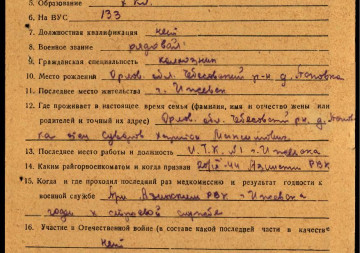 5. Образование 4 кл.
6. На ВУС 133
7. Должностная квалификация нет
8. Военное звание рядовой
9. Гражданская специальность
10. Место рождения Орлов. обл. р-н д. Поповка
11. Последнее место жительства г. Ижевск
12. Где проживает в настоящее время семья (фамилия, имя и отчество жены или
родителей и точный их адрес) Орлов. обл. р-н, д. Попов
ка отец
13. Последнее место работы и должность И.Т.К. №1 г. Ижевска
14. Каким райгорвоенкоматом и когда призван РВК
15. Когда и где проходил последний раз медкомиссию и результат годности к
военной службе При РВК г. Ижевска
годен к строевой службе
16. Участие в Отечественной войне (в составе какой последней части в качестве
нет